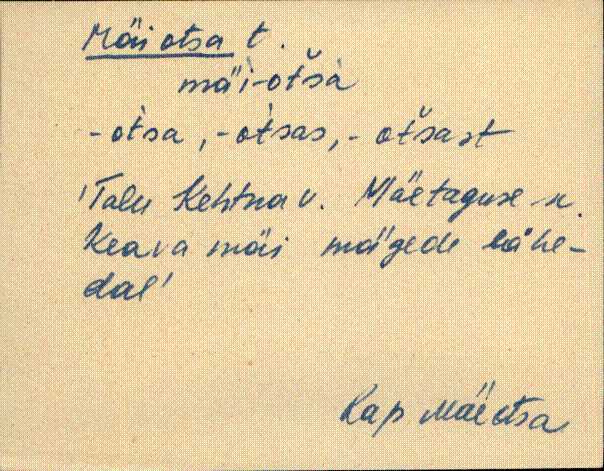 Mäiotsa t.
mäi-otša
-otsa, -otsas, -otšast
'Talu Kehtna v. Mäetaguse k.
Keava mäi mägede lähe-
dal'
Rap Mäeotsa